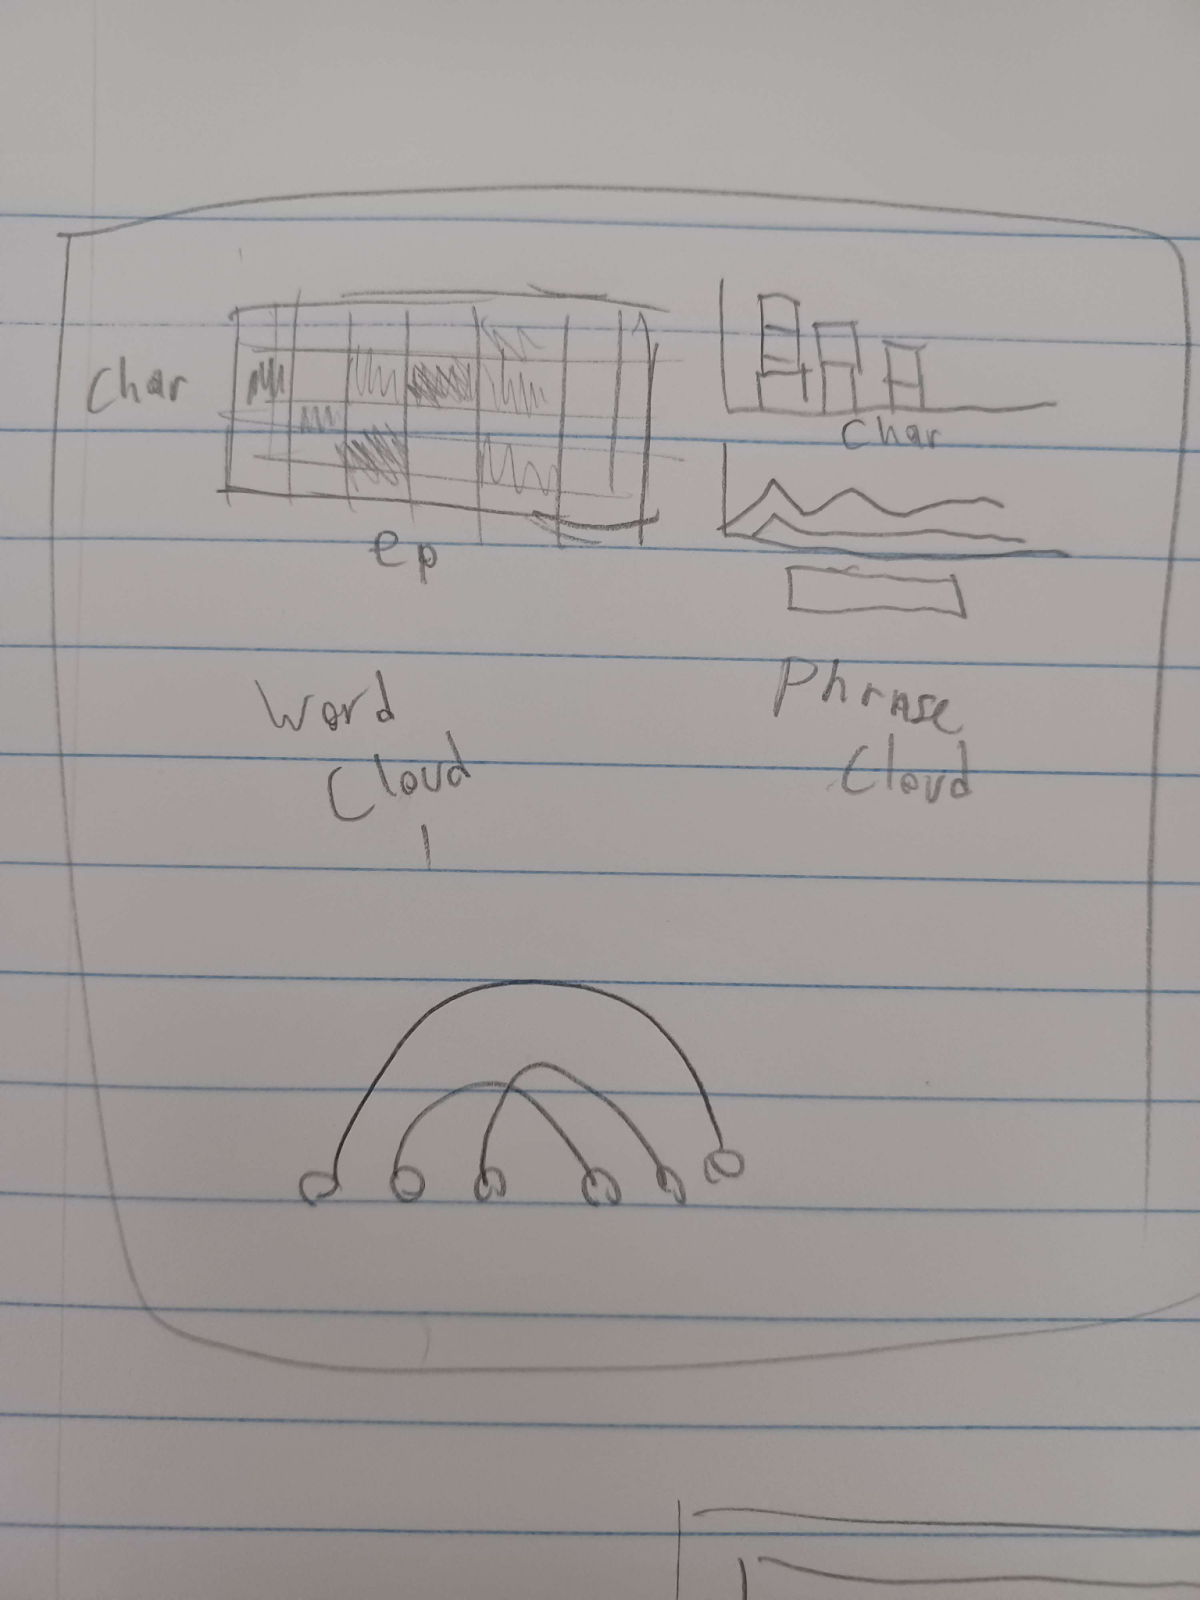 Char
Char
ep
Word
Cloud
Phrase
Cloud